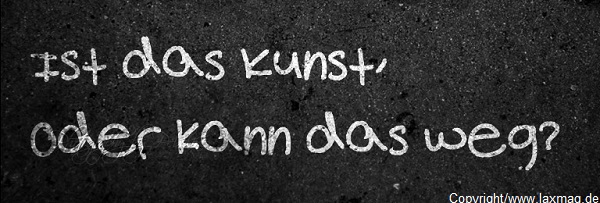 Ist das Kunst,
oder kann das weg?
Copyright/www.laxmag.de